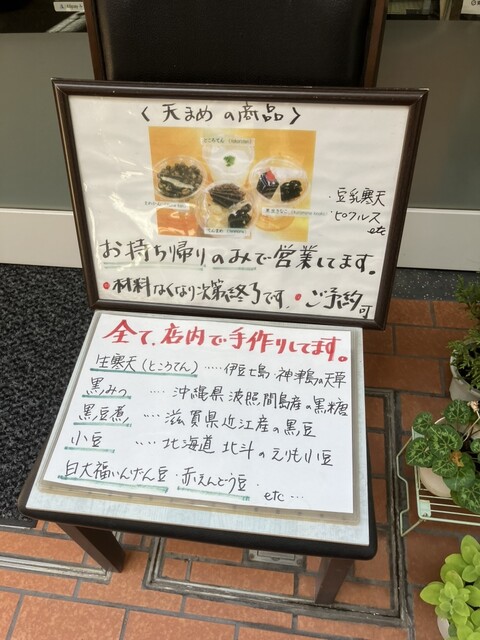 〈 天まめの商品 〉
ところてん
てんまめ
・豆乳寒天
・ピフルス
etc
お持ち帰りのみで営業してます。
・材料なくなり次第終了です。・ご予約可
全て、店内で手作りしてます。
生寒天(ところてん)‥‥伊豆七島 神津島の天草
黒みつ ‥‥沖縄県 波照間島産の黒糖
黒豆煮 ‥‥滋賀県近江産の黒豆
小豆 ‥‥北海道 北斗のえりも小豆
白大福いんげん豆・赤えんどう豆・
etc…